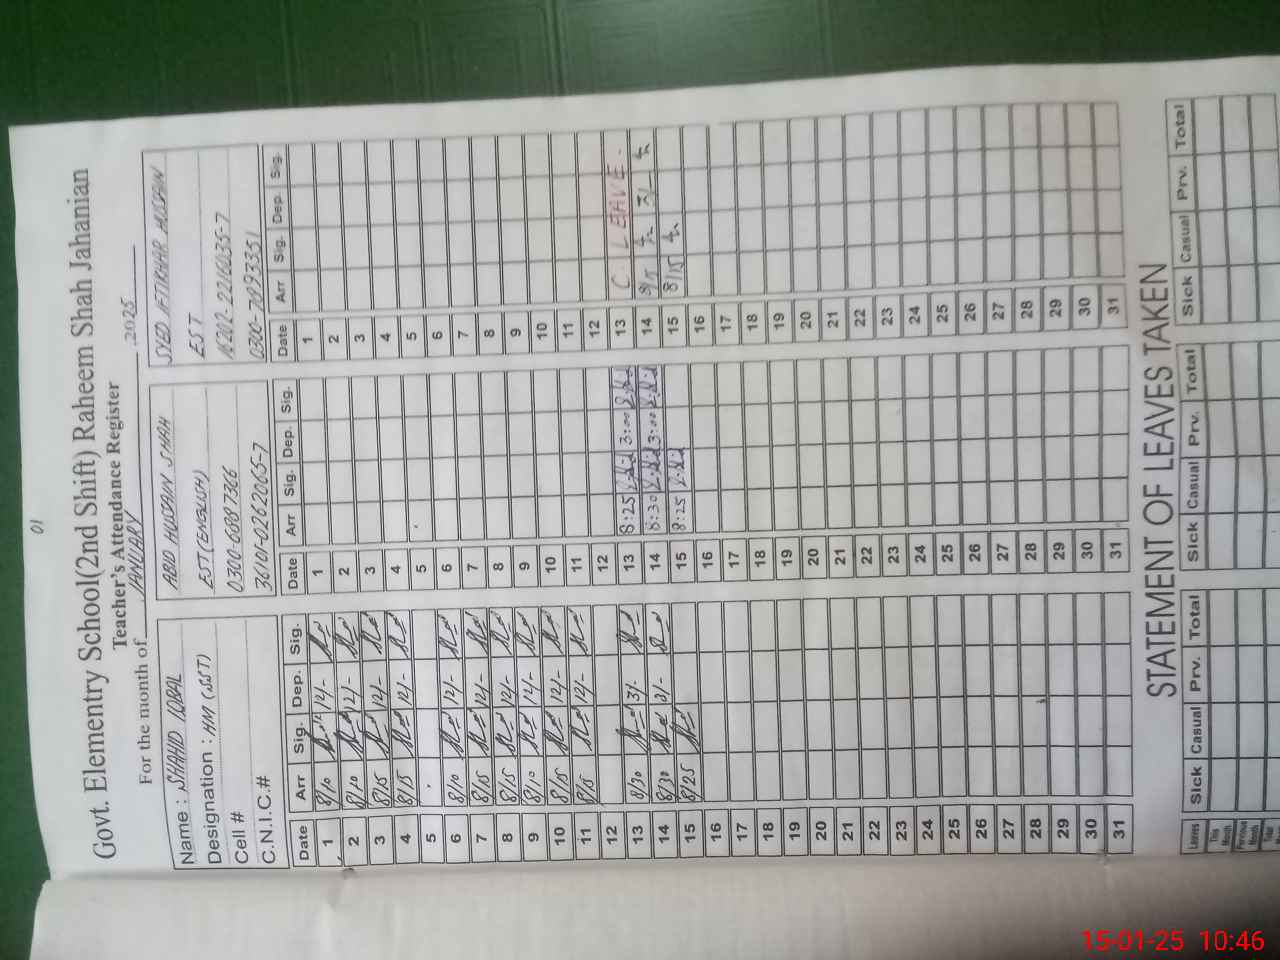 01
Govt. Elementry School(2nd Shift) Raheem Shah Jahanian
Teacher's Attendance Register
For the month of JANUARY ,2025
Name : SHAHID IQBAL ABID HUSSAIN SHAH SYED IFTIKHAR HUSSAIN
Designation : HM (SST) EST (ENGLISH) EST
Cell # 0300-6887366
C.N.I.C.# 36101-0262065-7 0300-7893351
Date Arr Sig. Dep. Sig. Date Arr Sig. Dep. Sig. Date Arr Sig. Dep. Sig.
1 8/10 12/- 1 1
2 8/10 12/- 2 2
3 8/15 12/- 3 3
4 8/15 12/- 4 4
5 5 5
6 8/10 12/- 6 6
7 8/15 12/- 7 7
8 8/15 12/- 8 8
9 8/10 12/- 9 9
10 8/15 12/- 10 10
11 8/15 12/- 11 11
12 12 12
13 8/30 3/- 13 8:25 3:00 13 C. LEAVE.
14 8/30 3/- 14 8:30 3:00 14 8/15 3/-
15 8/25 15 8:25 15 8/15
16 16 16
17 17 17
18 18 18
19 19 19
20 20 20
21 21 21
22 22 22
23 23 23
24 24 24
25 25 25
26 26 26
27 27 27
28 28 28
29 29 29
30 30 30
31 31 31
STATEMENT OF LEAVES TAKEN
Leaves Sick Casual Prv. Total Sick Casual Prv. Total Sick Casual Prv. Total
This Month
Month
Total
15-01-25 10:46